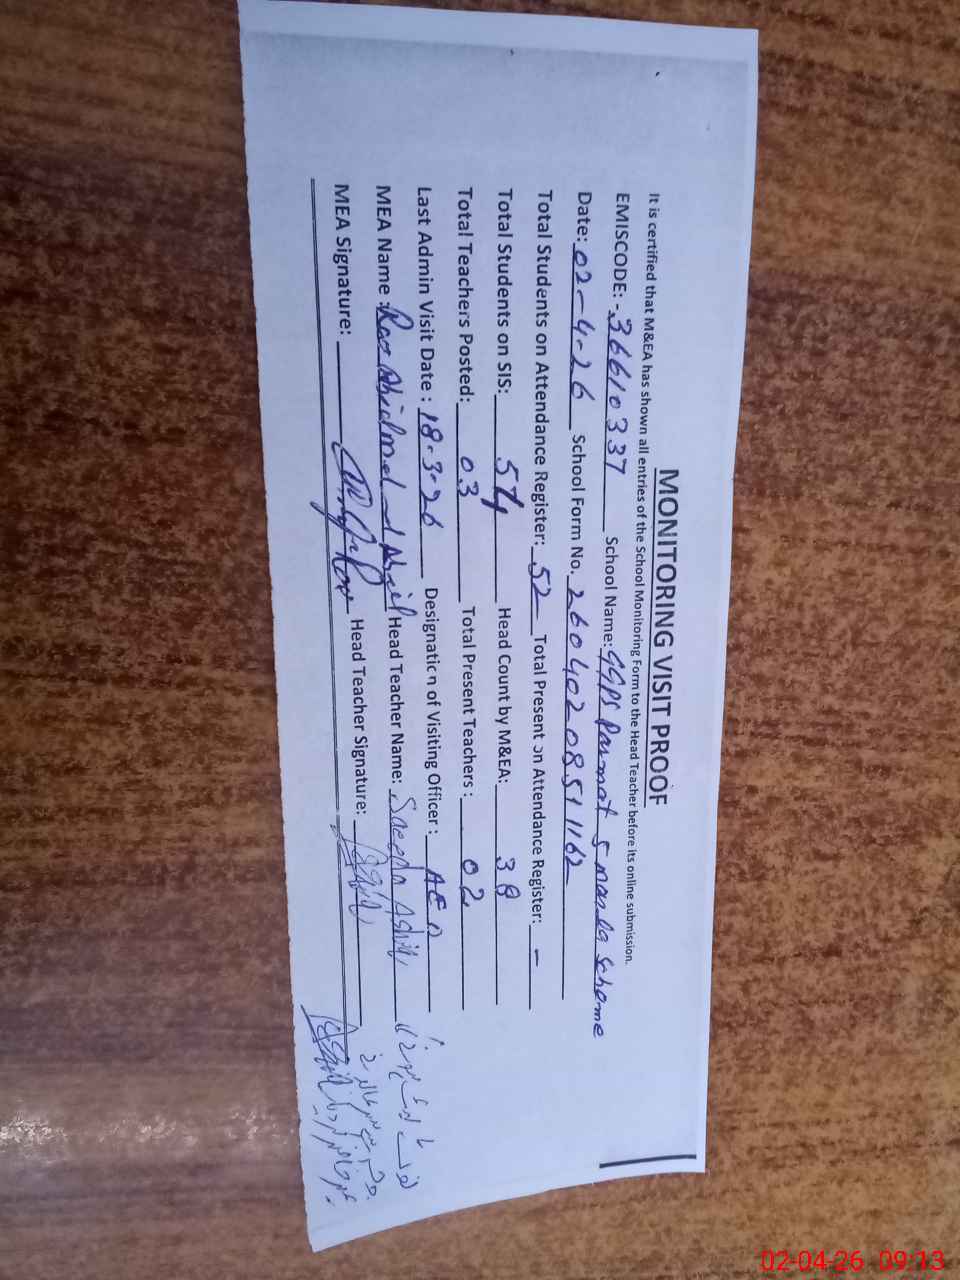 MONITORING VISIT PROOF
It is certified that M&EA has shown all entries of the School Monitoring Form to the Head Teacher before its online submission.
EMISCODE: - 36610337 School Name: GGPS Parmat 5 marla scheme
Date: 02-4-26 School Form No. 2604020851162
Total Students on Attendance Register: 52 Total Present on Attendance Register: -
Total Students on SIS: 54 Head Count by M&EA: 38
Total Teachers Posted: 03 Total Present Teachers: 02
Last Admin Visit Date: 18-3-26 Designation of Visiting Officer: AEO
MEA Name: Head Teacher Name: Saeeda
MEA Signature: Head Teacher Signature:
02-04-26 09:13